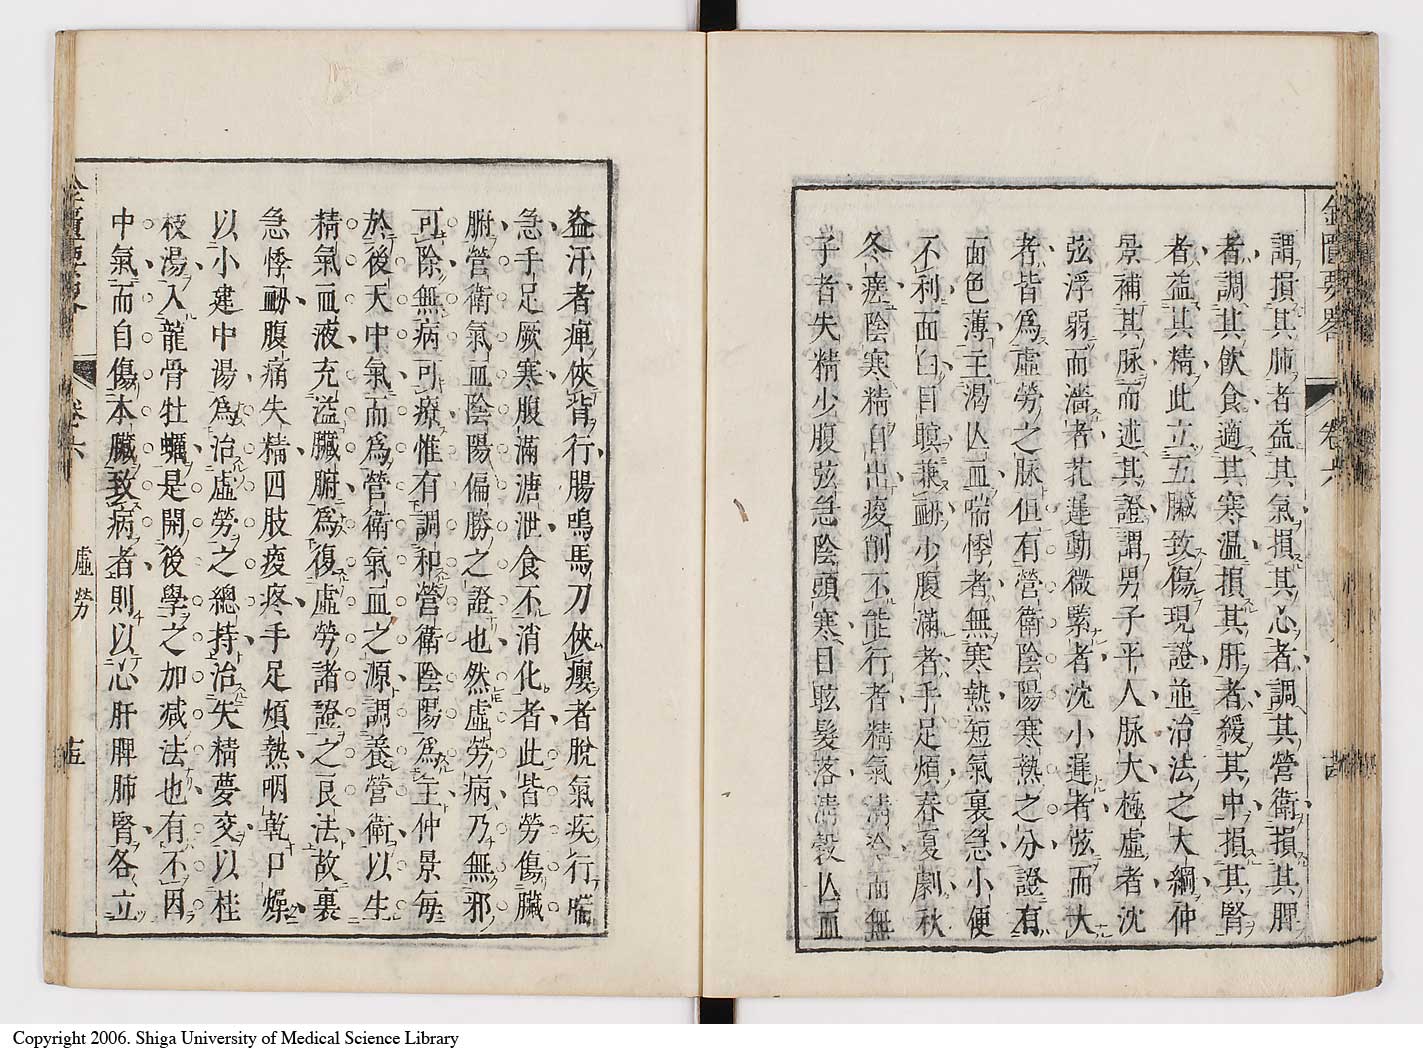 謂損其肺者益其氣損其心者調其營衛損其脾
者調其飲食適其寒温損其肝者緩其中損其腎
者益其精此立五臟致傷現證並治法之大綱仲
景補其脉而述其證謂男子平人脉大極虛者沈
弦浮弱而濇者芤遲動微緊者沈小遲者弦而大
者皆爲虛勞之脉但有營衛陰陽寒熱之分證有
面色薄主渴亾血喘悸者無寒熱短氣裏急小便
不利面白目瞑兼衂少腹滿者手足煩春夏劇秋
冬瘥陰寒精自出痠削不能行者精氣淸冷而無
子者失精少腹弦急陰頭寒目眩髮落淸穀亾血
金匱要畧 卷六
盜汗者痺俠背行腸鳴馬刀俠癭者脫氣疾行喘
急手足厥寒腹滿溏泄食不消化者此皆勞傷臟
腑營衛氣血陰陽偏勝之證也然虛勞病乃無邪
可除無病可療惟有調和營衛陰陽爲主仲景每
於後天中氣而爲營衛氣血之源調養營衛以生
精氣血液充溢臟腑爲復虛勞諸證之良法故裏
急悸衂腹痛失精四肢痠疼手足煩熱咽乾口燥
以小建中湯爲治虛勞之總持治失精夢交以桂
枝湯入龍骨牡蠣是開後學之加减法也有不因
中氣而自傷本臟致病者則以心肝脾肺腎各立
卷六 虛勞
Copyright 2006. Shiga University of Medical Science Library